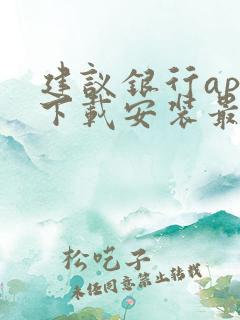 建议银行ap
下载安装最
松吃子
未经同意禁止转载